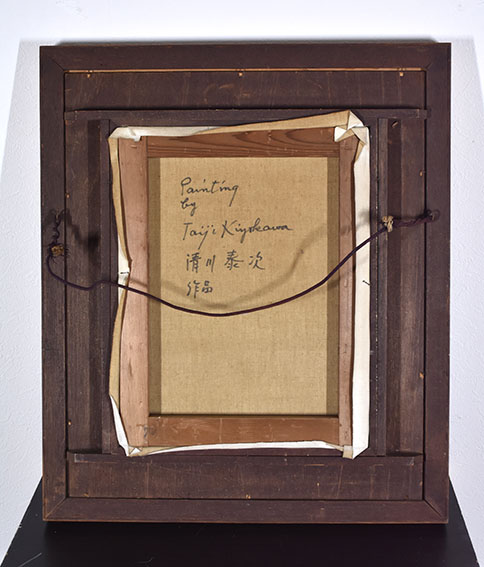 Painting
by
Taiji Kiyokawa
清川泰次
作品